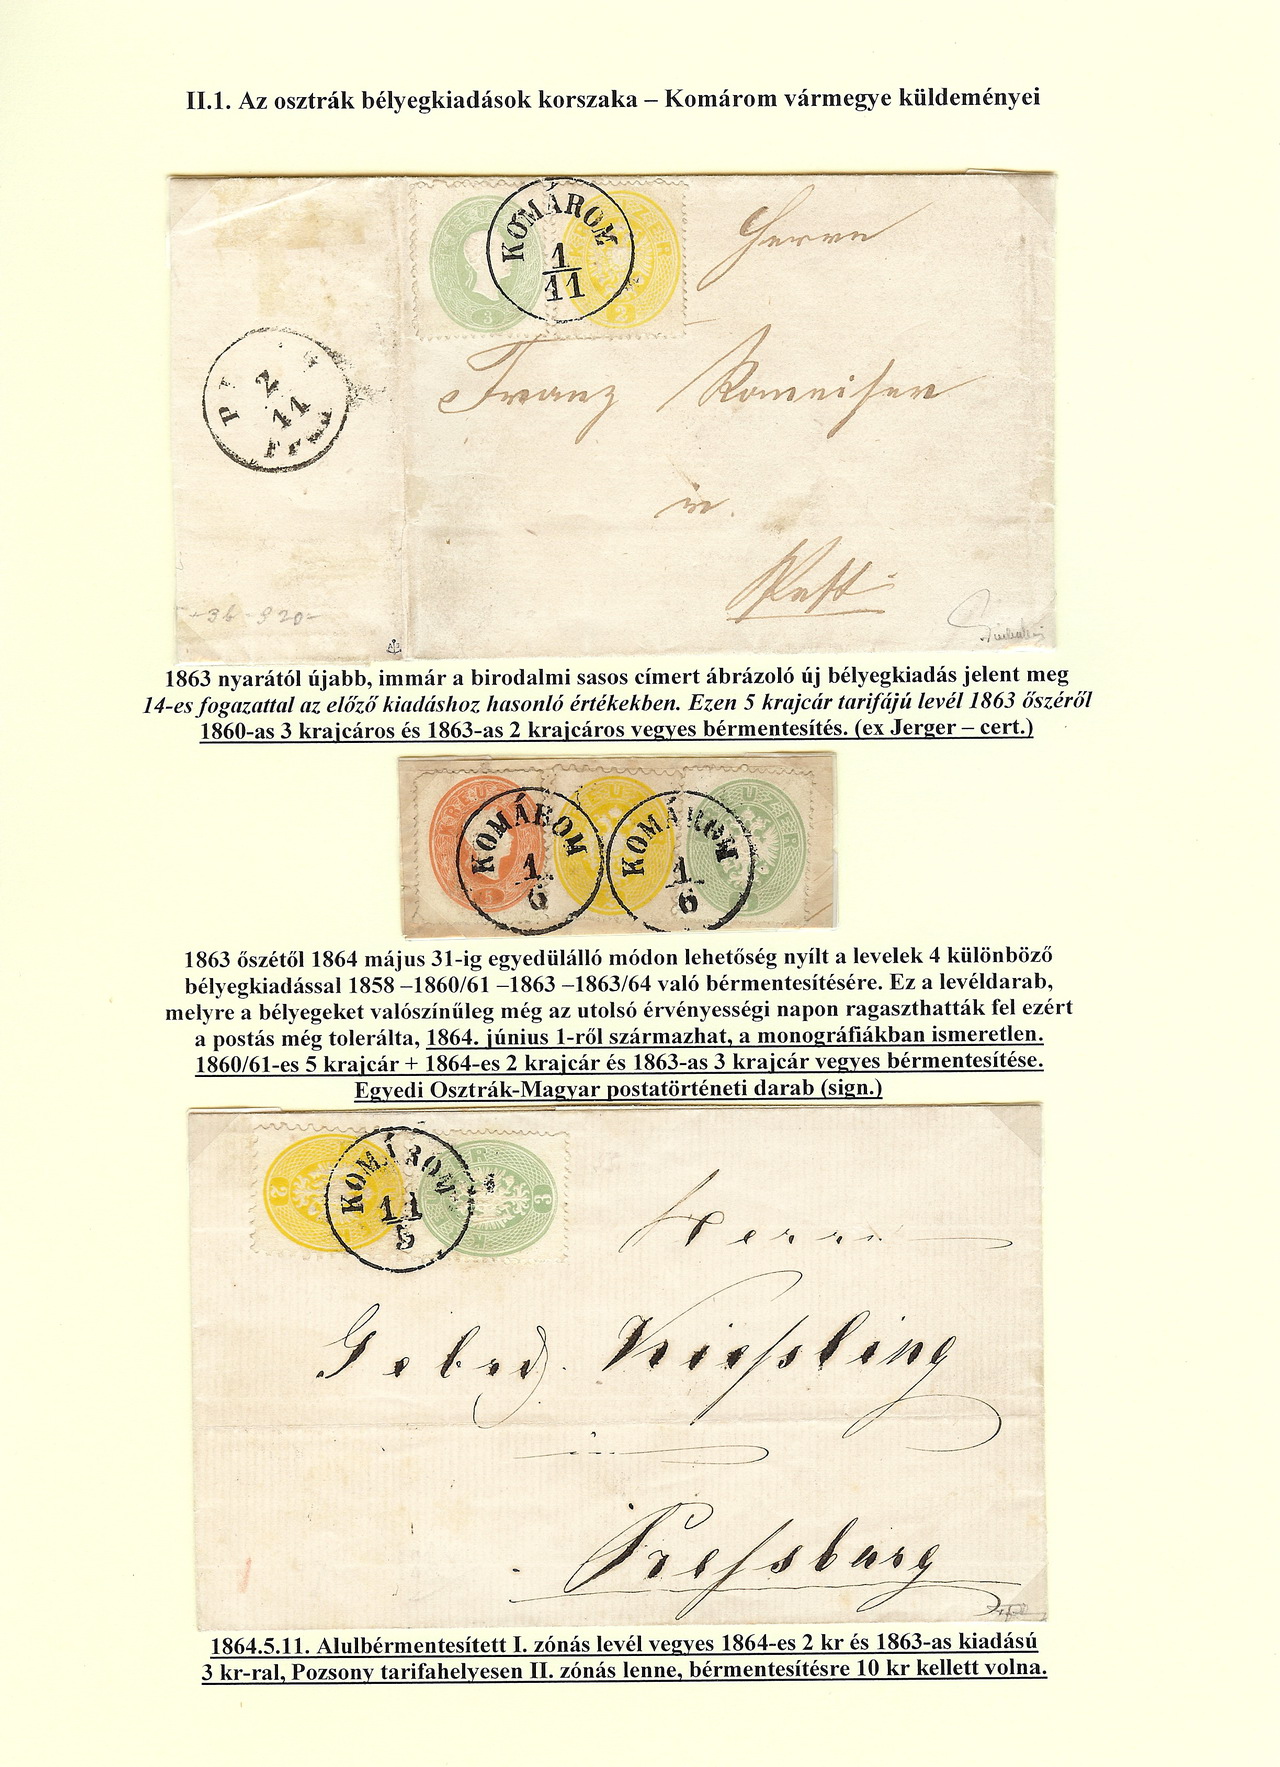 II.1. Az osztrák bélyegkiadások korszaka – Komárom vármegye küldeményei
KOMÁROM
1
11
3
2
Herrn
2
11
Franz
in
Pest
1863 nyarától újabb, immár a birodalmi sasos címert ábrázoló új bélyegkiadás jelent meg
14-es fogazattal az előző kiadáshoz hasonló értékekben. Ezen 5 krajcár tarifájú levél 1863 őszéről
1860-as 3 krajcáros és 1863-as 2 krajcáros vegyes bérmentesítés. (ex Jerger – cert.)
KOMÁROM
1
6
KOMÁROM
1
6
5
1863 őszétől 1864 május 31-ig egyedülálló módon lehetőség nyílt a levelek 4 különböző
bélyegkiadással 1858 –1860/61 –1863 –1863/64 való bérmentesítésére. Ez a levéldarab,
melyre a bélyegeket valószínűleg még az utolsó érvényességi napon ragaszthatták fel ezért
a postás még tolerálta, 1864. június 1-ről származhat, a monográfiákban ismeretlen.
1860/61-es 5 krajcár + 1864-es 2 krajcár és 1863-as 3 krajcár vegyes bérmentesítése.
Egyedi Osztrák-Magyar postatörténeti darab (sign.)
KOMÁROM
11
5
2
3
Herrn
Gebrd. Kießling
in
Pressburg
1864.5.11. Alulbérmentesített I. zónás levél vegyes 1864-es 2 kr és 1863-as kiadású
3 kr-ral, Pozsony tarifahelyesen II. zónás lenne, bérmentesítésre 10 kr kellett volna.